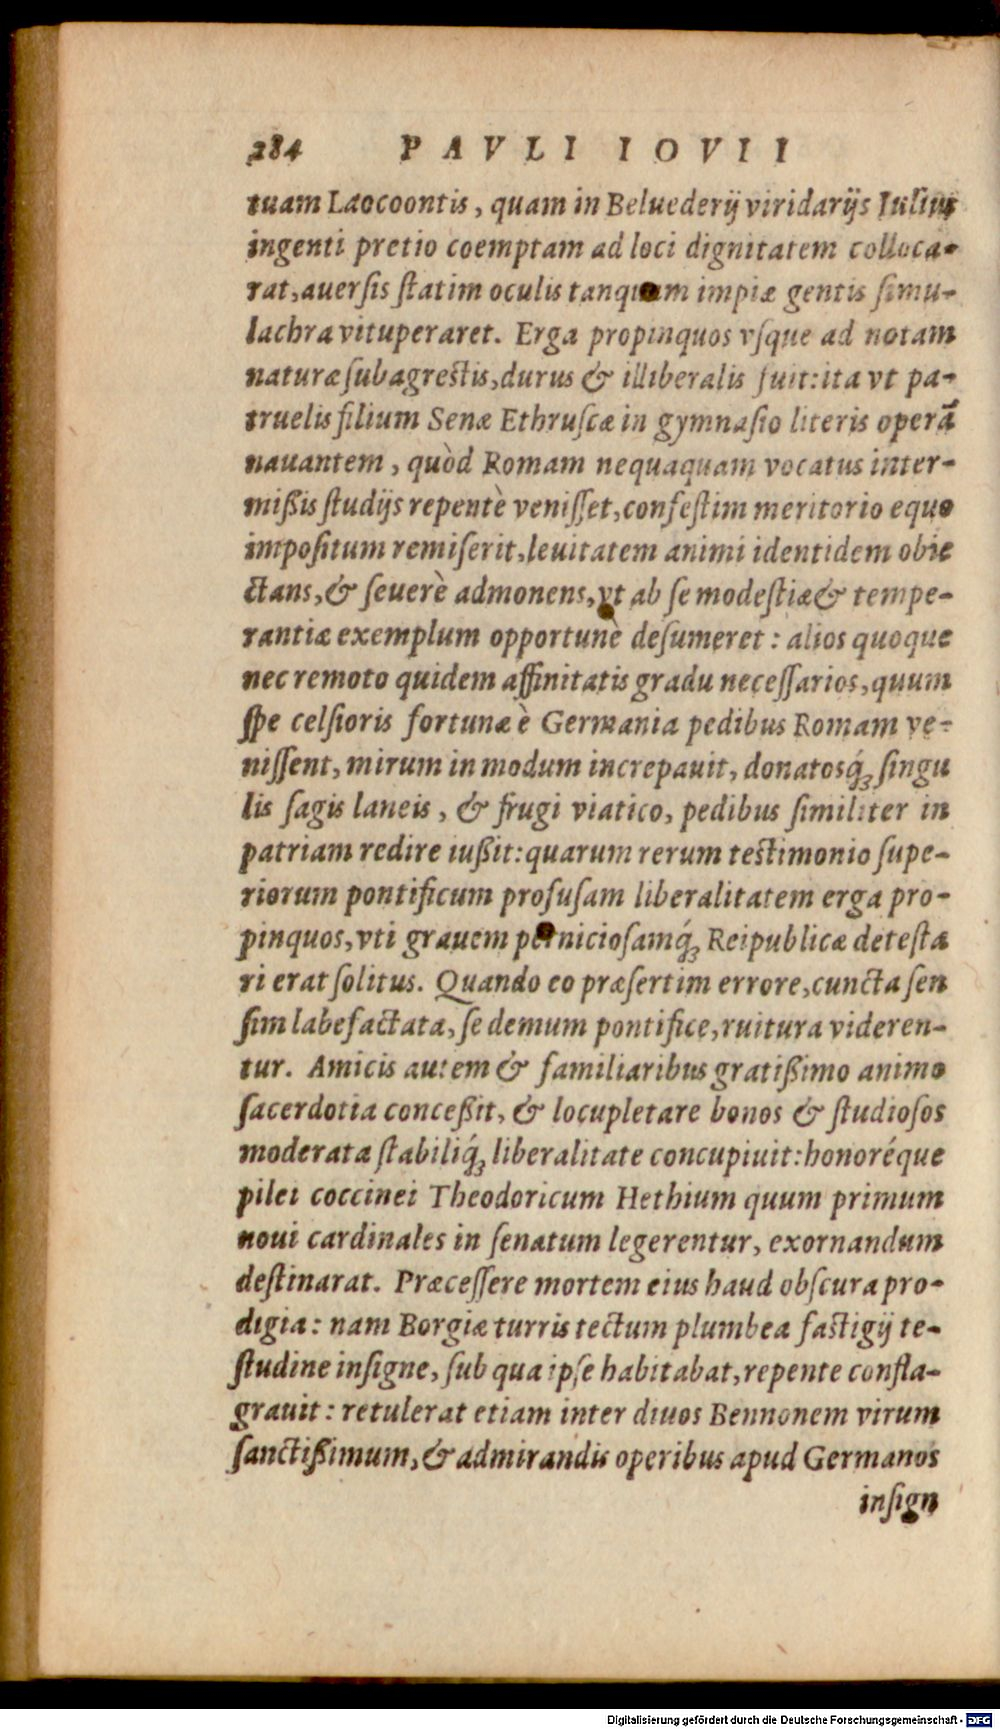 284 PAVLI IOVII
tuam Laocoontis, quam in Beluederij viridarijs Iulius
ingenti pretio coemptam ad loci dignitatem colloca-
rat, auerſis ſtatim oculis tanquam impiæ gentis ſimu-
lachra vituperaret. Erga propinquos vſque ad notam
naturæ ſubagreſtis, durus & illiberalis fuit: ita vt pa-
truelis filium Senæ Ethruſcæ in gymnaſio literis operā
nauantem, quòd Romam nequaquam vocatus inter-
mißis ſtudijs repentè veniſſet, confeſtim meritorio equo
impoſitum remiſerit, leuitatem animi identidem obie
ctans, & ſeuerè admonens, vt ab ſe modeſtiæ & tempe-
rantiæ exemplum opportunè deſumeret: alios quoque
nec remoto quidem affinitatis gradu neceſſarios, quum
ſpe celſioris fortunæ è Germania pedibus Romam ve-
niſſent, mirum in modum increpauit, donatosq́; ſingu
lis ſagis laneis, & frugi viatico, pedibus ſimiliter in
patriam redire iußit: quarum rerum teſtimonio ſupe-
riorum pontificum profuſam liberalitatem erga pro-
pinquos, vti grauem pernicioſamq́; Reipublicæ deteſta
ri erat ſolitus. Quando eo præſertim errore, cuncta ſen
ſim labefactata, ſe demum pontifice, ruitura videren-
tur. Amicis autem & familiaribus gratißimo animo
ſacerdotia conceßit, & locupletare bonos & ſtudioſos
moderata ſtabiliq́; liberalitate concupiuit: honoréque
pilei coccinei Theodoricum Hethium quum primum
noui cardinales in ſenatum legerentur, exornandum
deſtinarat. Præceſſere mortem eius haud obſcura pro-
digia: nam Borgiæ turris tectum plumbea faſtigij te-
ſtudine inſigne, ſub qua ipſe habitabat, repente confla-
grauit: retulerat etiam inter diuos Bennonem virum
ſanctißimum, & admirandis operibus apud Germanos
inſign
Digitalisierung gefördert durch die Deutsche Forschungsgemeinschaft - DFG